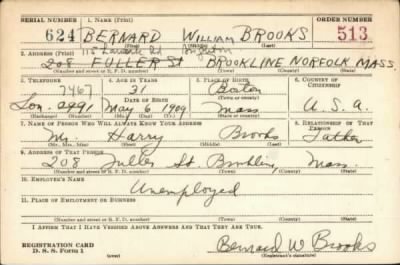 SERIAL NUMBER 1. NAME (Print) ORDER NUMBER
624 BERNARD WILLIAM BROOKS 513
(First) (Middle) (Last)
2. ADDRESS (Print) 115 Rd Brighton
208 FULLER St BROOKLINE NORFOLK MASS.
(Number and street or R. F. D. number) (Town) (County) (State)
3. TELEPHONE 4. AGE IN YEARS 5. PLACE OF BIRTH 6. COUNTRY OF CITIZENSHIP
7467 31 Boston
Lon. DATE OF BIRTH (Town or county)
May 6 1909 Mass U.S.A.
(Exchange) (Number) (Mo.) (Day) (Yr.) (State or country)
7. NAME OF PERSON WHO WILL ALWAYS KNOW YOUR ADDRESS 8. RELATIONSHIP OF THAT PERSON
Mr. Harry Brooks Father
(Mr., Mrs., Miss) (First) (Middle) (Last)
9. ADDRESS OF THAT PERSON
208 Fuller St. Brookline, Mass.
(Number and street or R. F. D. number) (Town) (County) (State)
10. EMPLOYER'S NAME
Unemployed
11. PLACE OF EMPLOYMENT OR BUSINESS
(Number and street or R. F. D. number) (Town) (County) (State)
I AFFIRM THAT I HAVE VERIFIED ABOVE ANSWERS AND THAT THEY ARE TRUE.
REGISTRATION CARD
D. S. S. Form 1 Bernard W. Brooks
(Registrant's signature)